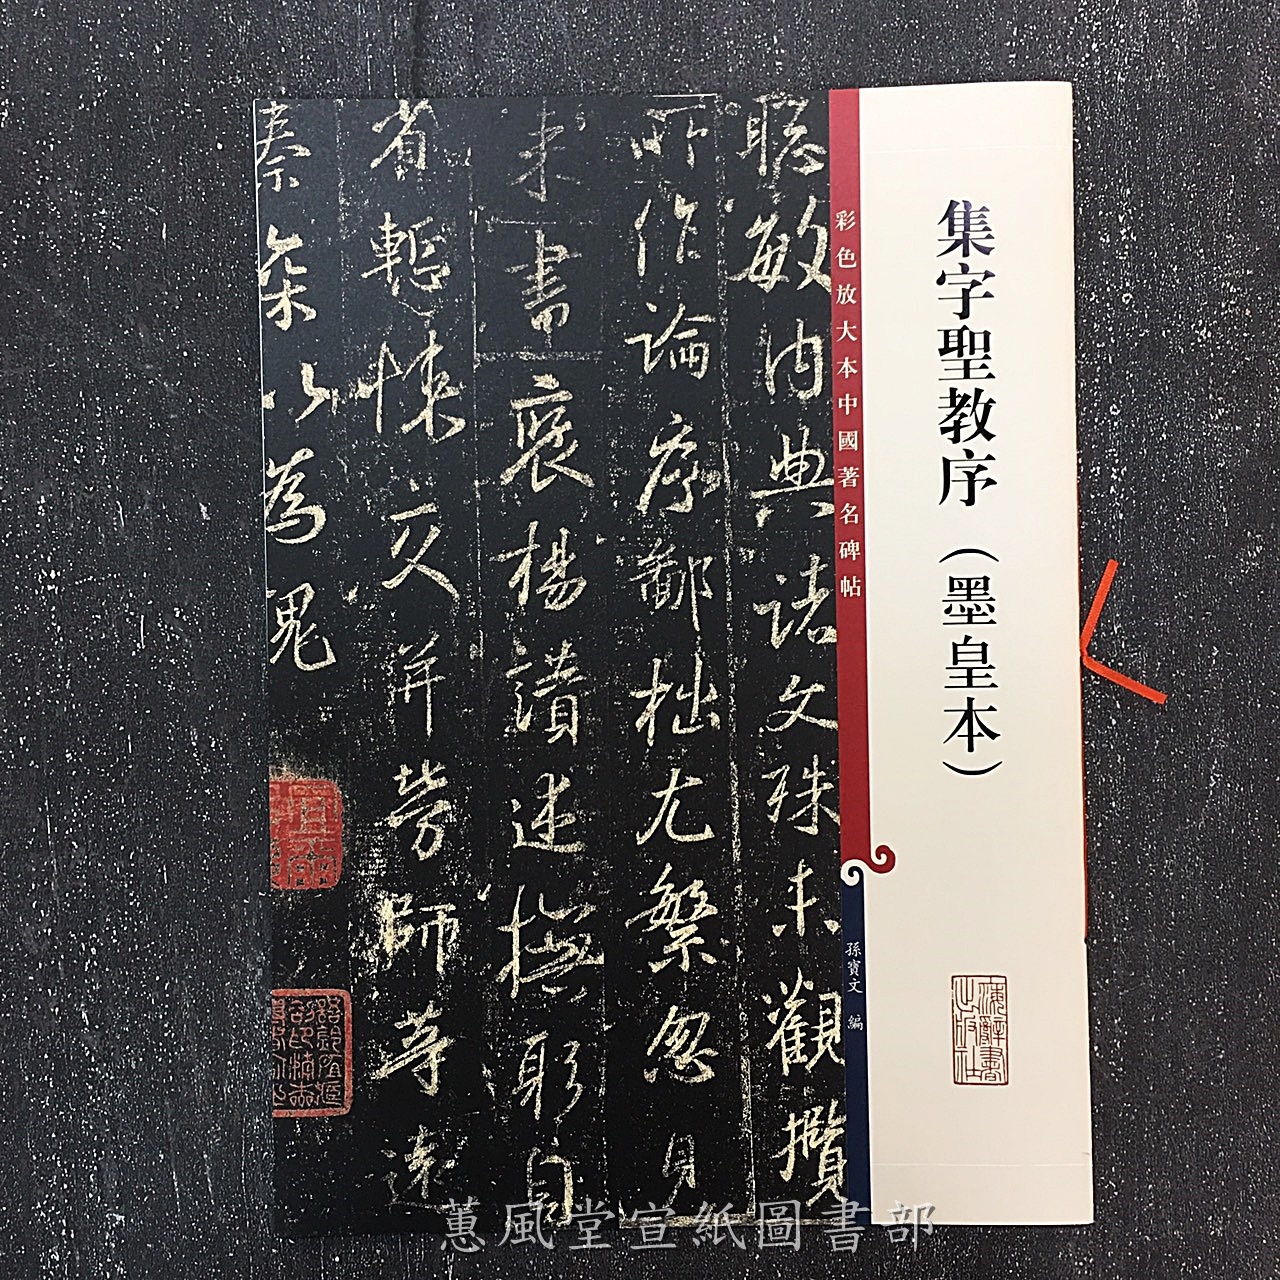 集字聖教序（墨皇本）
彩色放大本中國著名碑帖
孫寶文 編
海辭書出版社
聰敏内典諸文殊未觀攬
所作論序鄙拙尤繁忽見
来書褒揚讃述撫躬自
省慙悚交并勞師等遠
臻深以為愧
蕙風堂宣紙圖書部